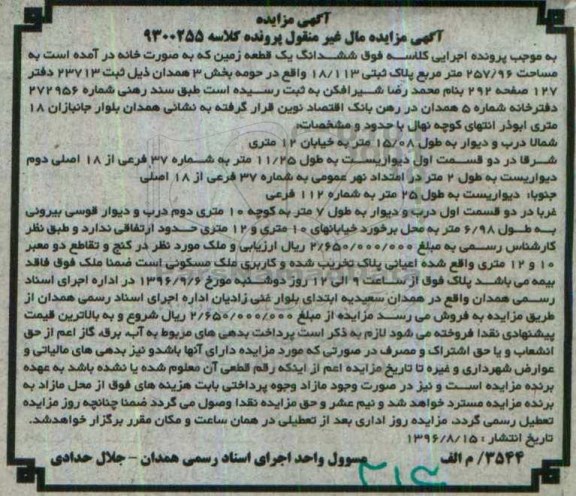 آگهی مزایده
آگهی مزایده مال غیر منقول پرونده کلاسه ۹۳۰۰۲۵۵
به موجب پرونده اجرایی کلاسه فوق ششدانگ یک قطعه زمین که به صورت خانه در آمده است به
مساحت ۲۵۷/۹۶ متر مربع پلاک ثبتی ۱۸/۱۱۳ واقع در حومه بخش ۳ همدان ذیل ثبت ۲۳۷۱۳ دفتر
۱۲۷ صفحه ۲۹۲ بنام محمد رضا شیرافکن به ثبت رسیده است طبق سند رهنی شماره ۲۷۲۹۵۶
دفترخانه شماره ۵ همدان در رهن بانک اقتصاد نوین قرار گرفته به نشانی همدان بلوار جانبازان ۱۸
متری ابوذر انتهای کوچه نهال با حدود و مشخصات:
شمالا درب و دیوار به طول ۱۵/۰۸ متر به خیابان ۱۲ متری
شرقا در دو قسمت اول دیواریست به طول ۱۱/۲۵ متر به شماره ۳۷ فرعی از ۱۸ اصلی دوم
دیواریست به طول ۲ متر در امتداد نهر عمومی به شماره ۳۷ فرعی از ۱۸ اصلی
جنوبا: دیواریست به طول ۲۵ متر به شماره ۱۱۲ فرعی
غربا در دو قسمت اول درب و دیوار به طول ۷ متر به کوچه ۱۰ متری دوم درب و دیوار قوسی بیرونی
به طول ۶/۹۸ متر به محل برخورد خیابانهای ۱۰ متری و ۱۲ متری حدود ارتفاقی ندارد و طبق نظر
کارشناس رسمی به مبلغ ۲/۶۵۰/۰۰۰/۰۰۰ ریال ارزیابی و ملک مورد نظر در کنج و تقاطع دو معبر
۱۰ و ۱۲ متری واقع شده اعیانی پلاک تخریب شده و کاربری ملک مسکونی است ضمنا ملک فوق فاقد
بیمه می باشد پلاک فوق از ساعت ۹ الی ۱۲ روز دوشنبه مورخ ۱۳۹۶/۹/۶ در اداره اجرای اسناد
رسمی همدان واقع در همدان سعیدیه ابتدای بلوار غنی زادیان اداره اجرای اسناد رسمی همدان از
طریق مزایده به فروش می رسد مزایده از مبلغ ۲/۶۵۰/۰۰۰/۰۰۰ ریال شروع و به بالاترین قیمت
پیشنهادی نقدا فروخته می شود لازم به ذکر است پرداخت بدهی های مربوط به آب، برق، گاز اعم از حق
انشعاب و یا حق اشتراک و مصرف در صورتی که مورد مزایده دارای آنها باشدو نیز بدهی های مالیاتی و
عوارض شهرداری و غیره تا تاریخ مزایده اعم از اینکه رقم قطعی آن معلوم شده یا نشده باشد به عهده
برنده مزایده است و نیز در صورت وجود مازاد وجوه پرداختی بابت هزینه های فوق از محل مازاد به
برنده مزایده مسترد خواهد شد و نیم عشر و حق مزایده نقدا وصول می گردد ضمنا چنانچه روز مزایده
تعطیل رسمی گردد، مزایده روز اداری بعد از تعطیلی در همان ساعت و مکان مقرر برگزار خواهدشد.
تاریخ انتشار : ۱۳۹۶/۸/۱۵
۳۵۴۴/ م الف مسوول واحد اجرای اسناد رسمی همدان – جلال حدادی